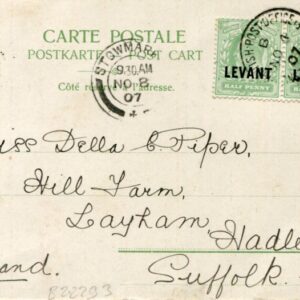 CARTE POSTALE
POSTKARTE POST CART
Côté réservé à l'adresse.
STOWMARK
9.30 AM
NO 8
07
SH POST OFFICE
B
NO 4
07
LEVANT
HALF PENNY
iss Della C. Piper,
Hill Farm,
Layham,
Hadle
land.
Suffolk.